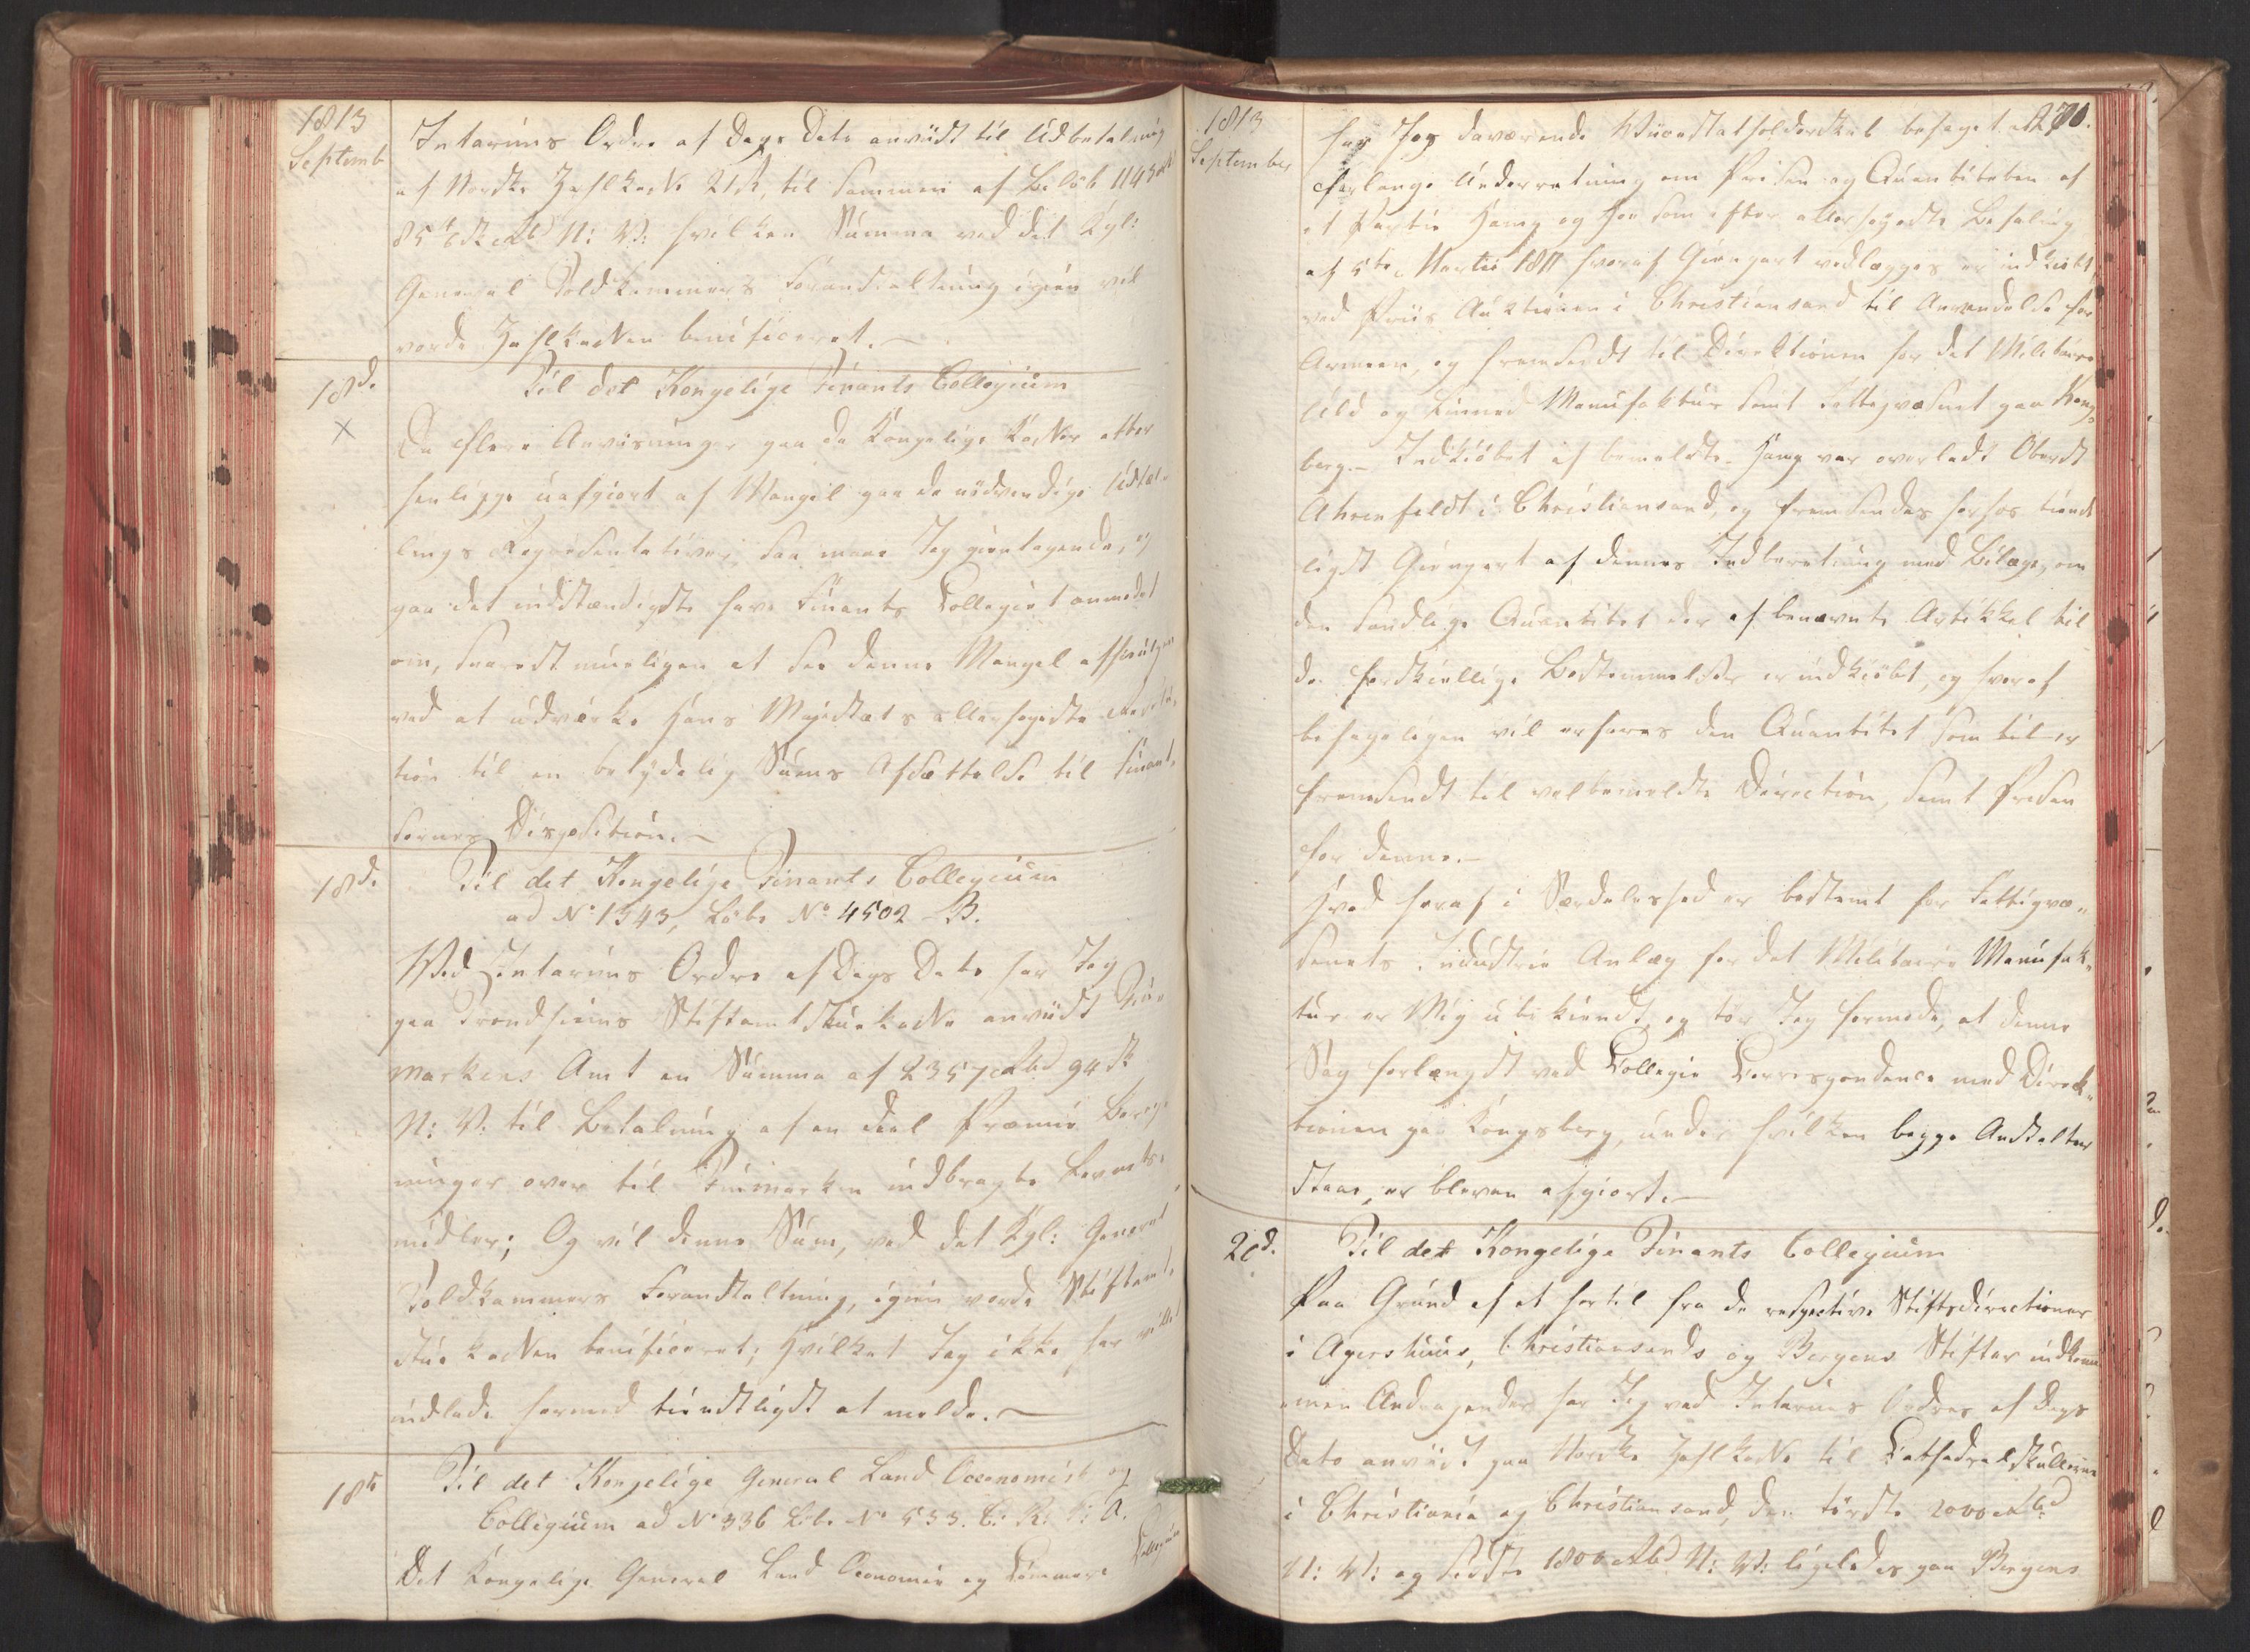 1813
Septemb
Intarims Ordre af Dags Dato anviist til Udbetaling
af Norske Zahlkasse 21 til sammen af Beløb 1143
85 N: V: hvilken Summa ved det Kgl:
General Toldkammers Foranstaltning igien vil
vorde Zahlkassen benificeret.
18d.
Til det Kongelige Finants Collegium
X
Da flere Anvisninger paa de Kongelige Kasser atter
henligge uafgiort af Mangel paa de nødvendige Udtæl„
lings Repræsentativer, saa maae Jeg gientagende,
paa det indstændigste have Finants Collegiet anmodet
om, snarest mueligen at see denne Mangel afhiulpen
ved at udvirke Hans Majestæts allerhøyeste
tion til en betydelig Sums Afsættelse til Finant„
sernes Disposition.
18d.
Til det Kongelige Finants Collegium
ad No 1343, Løbe No 4502 B.
Ved Intarims Ordre af Dags Dato har Jeg
paa Trondhiems Stiftamtstuekasse anviist Fin„
markens Amt en Summa af 2357 Rbd 94 s
N: V. til Betaling af en Deel Præmie Bereg„
ninger over til Finmarken indbragte Levnets„
midler; Og vil denne Sum, ved det Kgl: General
Toldkammers Foranstaltning, igien vorde Stiftamt„
stuekassen benificeret; Hvilket Jeg ikke har villet
undlade hermed tienstligst at melde.
18de
Til det Kongelige General Land Oeconomie og
Collegium ad No 336 Løbe No 533. C: K: A.
Det Kongelige General Land Oeconomie og Commerce
Collegium
1813
September
270.
har Jeg daværende Viicestatholderskab behaget at
forlange Underretning om Prisen og Quantiteten af
et Partie Hamp og Hør som efter allerhøyeste Befaling
af 5te Martii 1811 hvoraf Gienpart vedlægges er indkiøbt
ved Priis Auktioner i Christiansand til Anvendelse for
Armeen, og fremsendt til Direktionen for det Militaire
Uld og Linned Manufaktur samt Fattigvæsnet paa Kongs„
berg. Indkiøbet af bemeldte Hamp var overladt Oberst
Ahrenfeldt i Christiansand, og fremsendes herhos tienst
ligst Gienpart af dennes Indberetning med Bilage, om
den samtlige Quantitet der af benævnte Artikkel til
de forskiellige Bestemmelser er indkiøbt, og hvoraf
behageligen vil erfares den Quantitet som til er
fremsendt til velbemeldte Direction, samt Prisen
for denne.
Hvad heraf i Særdeleshed er bestemt for Fattigvæ„
senets Industrie Anlæg for det Militaire Manufak„
tur er Mig ubekiendt, og tør Jeg formode, at denne
Sag forlængst ved Collegie Correspondence med Direk„
tionen paa Kongsberg, under hvilken begge Anstalter
staae, er bleven afgiort.
20d.
Til det Kongelige Finants Collegium
Paa Grund af et hertil fra de respective Stiftsdirectioner
i Agershuus, Christiansands og Bergens Stifter indkom„
men Andragender har Jeg ved Intarims Ordre af Dags
Dato anviist paa Norske Zahlkasse til Cathedralskullerne
i Christiania og Christiansand, den første 2000 Rbd
N: V: og sidste 1800 Rbd N: V: ligeledes paa Bergens